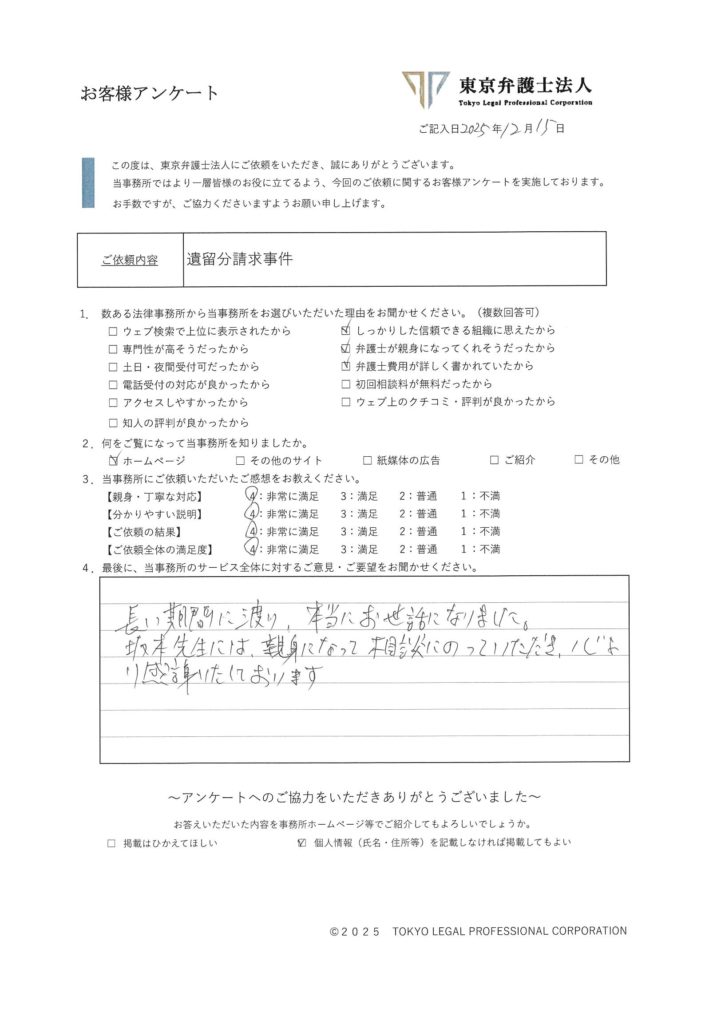 お客様アンケート
東京弁護士法人
Tokyo Legal Professional Corporation
ご記入日2025年12月15日
この度は、東京弁護士法人にご依頼をいただき、誠にありがとうございます。
当事務所ではより一層皆様のお役に立てるよう、今回のご依頼に関するお客様アンケートを実施しております。
お手数ですが、ご協力くださいますようお願い申し上げます。
ご依頼内容 遺留分請求事件
1. 数ある法律事務所から当事務所をお選びいただいた理由をお聞かせください。（複数回答可）
□ ウェブ検索で上位に表示されたから ☑ しっかりした信頼できる組織に思えたから
□ 専門性が高そうだったから ☑ 弁護士が親身になってくれそうだったから
□ 土日・夜間受付可だったから ☑ 弁護士費用が詳しく書かれていたから
□ 電話受付の対応が良かったから □ 初回相談料が無料だったから
□ アクセスしやすかったから □ ウェブ上のクチコミ・評判が良かったから
□ 知人の評判が良かったから
2. 何をご覧になって当事務所を知りましたか。
☑ ホームページ □ その他のサイト □ 紙媒体の広告 □ ご紹介 □ その他
3. 当事務所にご依頼いただいたご感想をお教えください。
【親身・丁寧な対応】 4：非常に満足 3：満足 2：普通 1：不満
【分かりやすい説明】 4：非常に満足 3：満足 2：普通 1：不満
【ご依頼の結果】 4：非常に満足 3：満足 2：普通 1：不満
【ご依頼全体の満足度】 4：非常に満足 3：満足 2：普通 1：不満
4. 最後に、当事務所のサービス全体に対するご意見・ご要望をお聞かせください。
長い期間に渡り、本当にお世話になりました。
坂本先生には、親身になって相談にのっていただき、心よ
り感謝いたしております
～アンケートへのご協力をいただきありがとうございました～
お答えいただいた内容を事務所ホームページ等でご紹介してもよろしいでしょうか。
□ 掲載はひかえてほしい ☑ 個人情報（氏名・住所等）を記載しなければ掲載してもよい
©2025 TOKYO LEGAL PROFESSIONAL CORPORATION